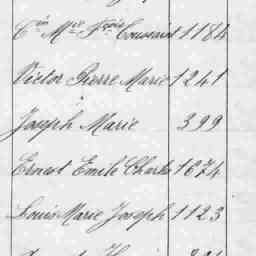 Cin Mie Frois Toussaint 1184
Victor Pierre Marie 1241
Joseph Marie 399
Ernest Emile Charles 1674
Louis Marie Joseph 1123